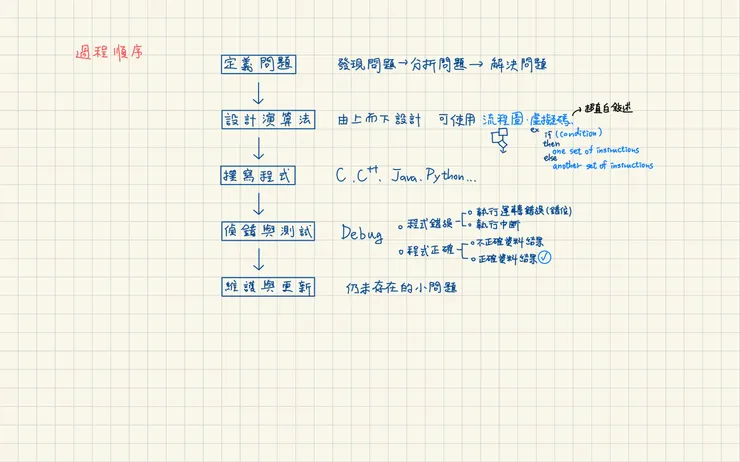 過程順序
定義問題 發現問題→分析問題→ 解決問題
設計演算法 由上而下設計 可使用 流程圖、虛擬碼 →超直白敘述
ex if (condition)
then
one set of instructions
else
another set of instructions
撰寫程式 C、C++、Java、Python...
偵錯與測試 Debug
程式錯誤
執行邏輯錯誤(錯位)
執行中斷
程式正確
不正確資料結果
正確資料結果 ✓
維護與更新 仍未存在的小問題